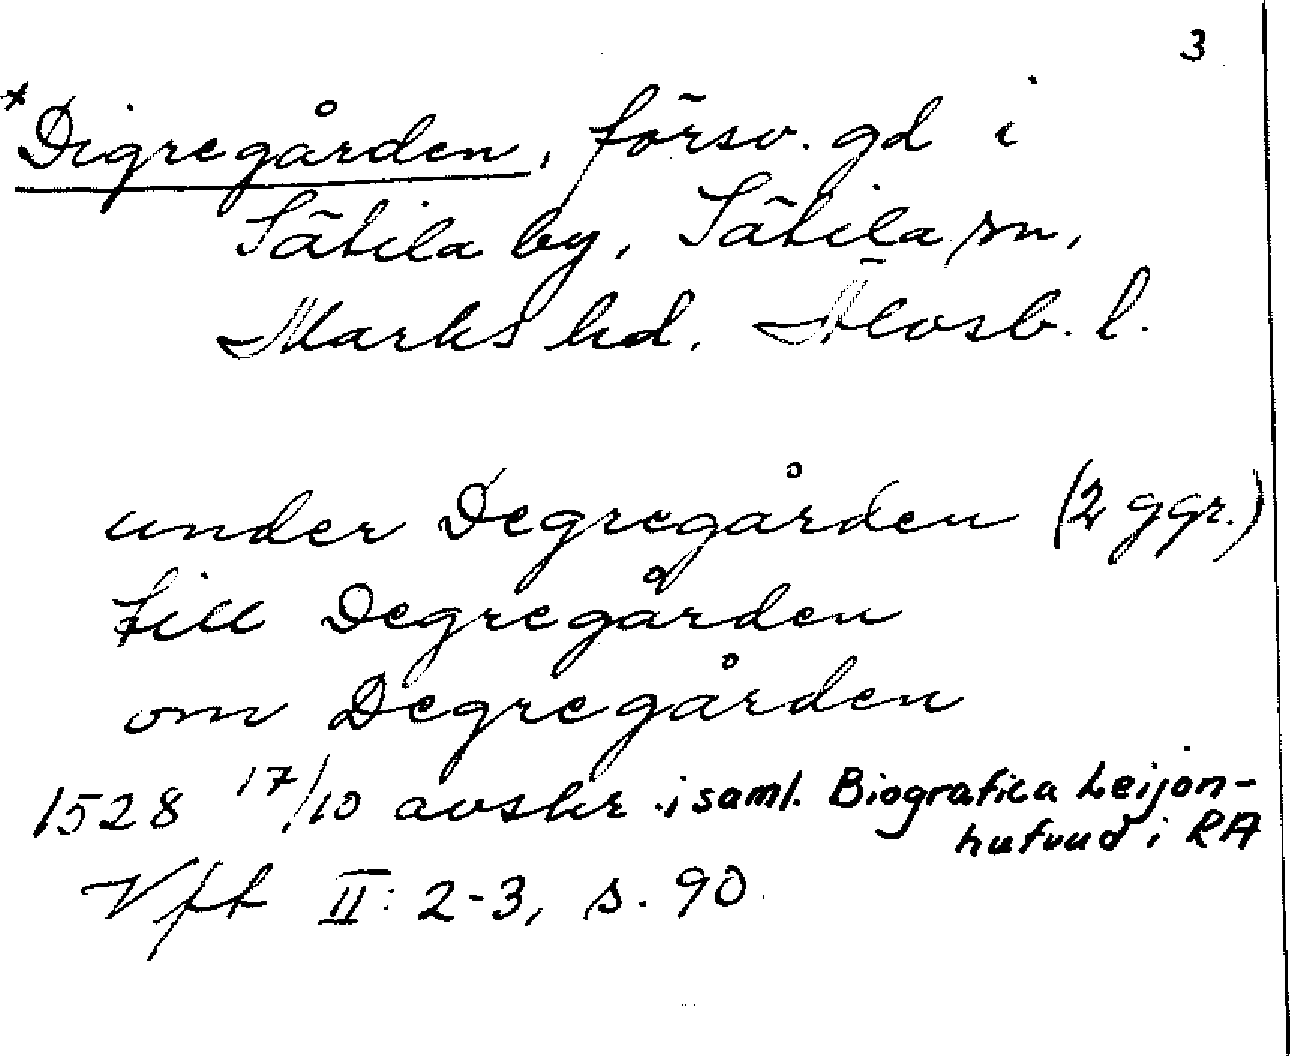 3
*Digregården, försv. gd i
Sätila by, Sätila sn,
Marks hd, Älvsb. l.
under Degregården (2 ggr.)
till Degregården
om Degregården
1528 17/10 avskr. i saml. Biografica Leijon-
hufvud i RA
Vft II: 2-3, s. 90